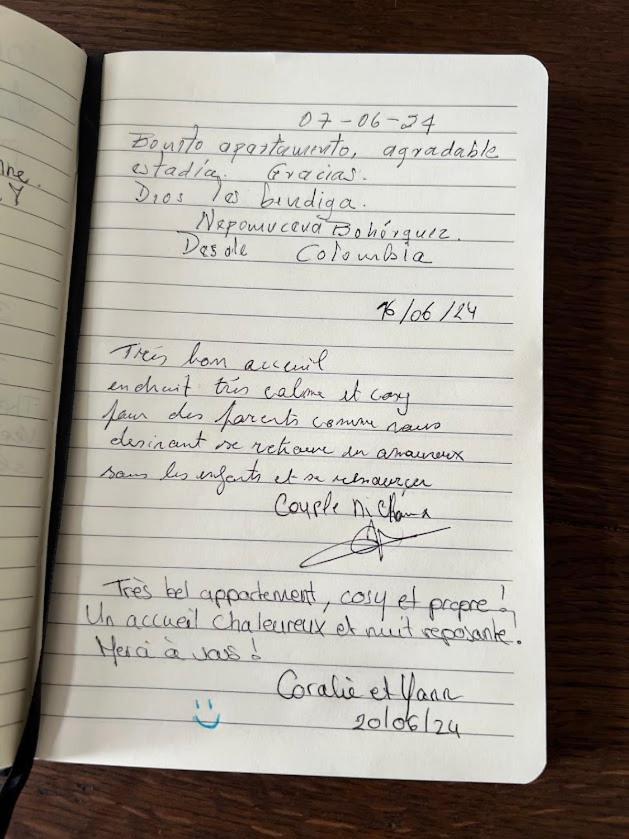 07-06-24
Bonito apartamento, agradable
estadía. Gracias.
Dios les bendiga.
Nepomuceva Bohórquez.
Desde Colombia
16/06/24
Trés bon accueil
endruit trés calme et cosy
pour des parents comme nous
desirant se retrouve en amoureux
sans les enfants et se ressourcer
Couple
Très bel appartement, cosy et propre!
Un accueil chaleureux et nuit reposante.
Merci à vous!
Coralie et Yann
20/06/24